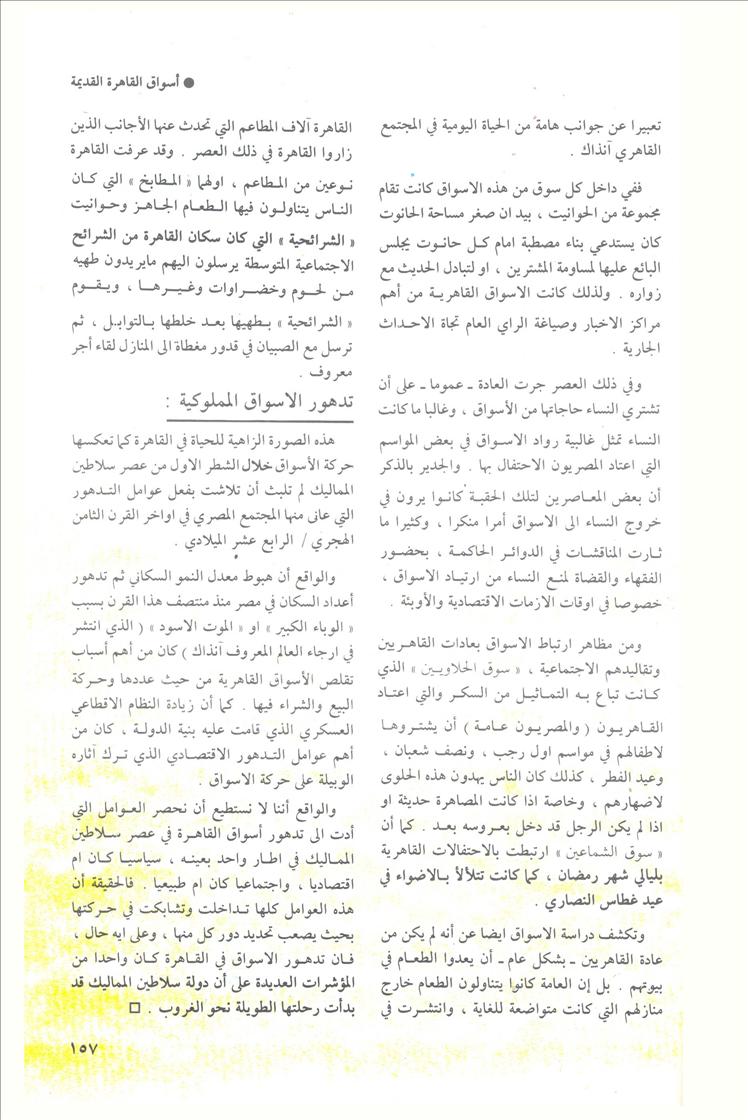 ● أسواق القاهرة القديمة
تعبيرا عن جوانب هامة من الحياة اليومية في المجتمع
القاهري آنذاك .
ففي داخل كل سوق من هذه الاسواق كانت تقام
مجموعة من الحوانيت ، بيد ان صغر مساحة الحانوت
كان يستدعي بناء مصطبة امام كل حانوت يجلس
البائع عليها لمساومة المشترين ، او لتبادل الحديث مع
زواره . ولذلك كانت الاسواق القاهرية من أهم
مراكز الاخبار وصياغة الراي العام تجاة الاحداث
الجارية .
وفي ذلك العصر جرت العادة ـ عموما ـ على أن
تشتري النساء حاجاتها من الأسواق ، وغالبا ما كانت
النساء تمثل غالبية رواد الاسواق في بعض المواسم
التي اعتاد المصريون الاحتفال بها . والجدير بالذكر
أن بعض المعاصرين لتلك الحقبة كانوا يرون في
خروج النساء الى الاسواق أمرا منكرا ، وكثيرا ما
ثارت المناقشات في الدوائر الحاكمة ، بحضور
الفقهاء والقضاة لمنع النساء من ارتياد الاسواق ،
خصوصا في اوقات الازمات الاقتصادية والأوبئة .
ومن مظاهر ارتباط الاسواق بعادات القاهريين
وتقاليدهم الاجتماعية ، « سوق الحلاويين » الذي
كانت تباع به التماثيل من السكر والتي اعتاد
القاهريون ( والمصريون عامة ) أن يشتروها
لاطفالهم في مواسم اول رجب ، ونصف شعبان ،
وعيد الفطر ، كذلك كان الناس يهدون هذه الحلوى
لاضهارهم ، وخاصة اذا كانت المصاهرة حديثة او
اذا لم يكن الرجل قد دخل بعروسه بعد . كما أن
« سوق الشماعين » ارتبطت بالاحتفالات القاهرية
بليالي شهر رمضان ، كما كانت تتلألأ بالاضواء في
عيد غطاس النصاري .
وتكشف دراسة الاسواق ايضا عن أنه لم يكن من
عادة القاهريين ـ بشكل عام ـ أن يعدوا الطعام في
بيوتهم . بل إن العامة كانوا يتناولون الطعام خارج
منازلهم التي كانت متواضعة للغاية ، وانتشرت في
القاهرة آلاف المطاعم التي تحدث عنها الأجانب الذين
زاروا القاهرة في ذلك العصر . وقد عرفت القاهرة
نوعين من المطاعم ، اولهما « المطابخ » التي كان
الناس يتناولون فيها الطعام الجاهز وحوانيت
« الشرائحية » التي كان سكان القاهرة من الشرائح
الاجتماعية المتوسطة يرسلون اليهم مايريدون طهيه
من لحوم وخضراوات وغيرها ، ويقوم
« الشرائحية » بطهيها بعد خلطها بالتوابل ، ثم
ترسل مع الصبيان في قدور مغطاة الى المنازل لقاء أجر
معروف .
تدهور الاسواق المملوكية :
هذه الصورة الزاهية للحياة في القاهرة كما تعكسها
حركة الأسواق خلال الشطر الاول من عصر سلاطين
المماليك لم تلبث أن تلاشت بفعل عوامل التدهور
التي عانى منها المجتمع المصري في اواخر القرن الثامن
الهجري / الرابع عشر الميلادي .
والواقع أن هبوط معدل النمو السكاني ثم تدهور
أعداد السكان في مصر منذ منتصف هذا القرن بسبب
« الوباء الكبير » او « الموت الاسود » ( الذي انتشر
في ارجاء العالم المعروف آنذاك ) كان من أهم أسباب
تقلص الأسواق القاهرية من حيث عددها وحركة
البيع والشراء فيها . كما أن زيادة النظام الاقطاعي
العسكري الذي قامت عليه بنية الدولة ، كان من
أهم عوامل التدهور الاقتصادي الذي ترك آثاره
الوبيلة على حركة الاسواق .
والواقع أننا لا نستطيع أن نحصر العوامل التي
أدت الى تدهور أسواق القاهرة في عصر سلاطين
المماليك في اطار واحد بعينه ، سياسيا كان ام
اقتصاديا ، واجتماعيا كان ام طبيعيا . فالحقيقة أن
هذه العوامل كلها تداخلت وتشابكت في حركتها
بحيث يصعب تحديد دور كل منها ، وعلى ايه حال ،
فان تدهور الاسواق في القاهرة كان واحدا من
المؤشرات العديدة على أن دولة سلاطين المماليك قد
بدأت رحلتها الطويلة نحو الغروب . □
١٥٧